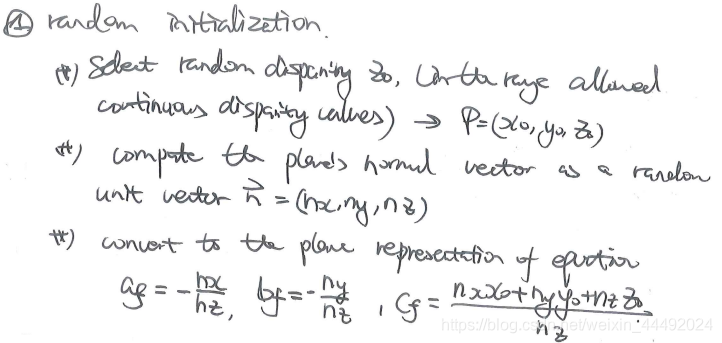 ① random initialization.
(*) Select random disparity z₀, (in the range allowed
continuous disparity values) → P=(x₀, y₀, z₀)
*) compute the plane's normal vector as a random
unit vector n⃗ = (nx, ny, nz)
*) convert to the plane representation of equation
af = -nx/nz, bf = -ny/nz, Cf = (nxx₀+nyy₀+nzz₀)/nz.
https://blog.csdn.net/weixin_44492024